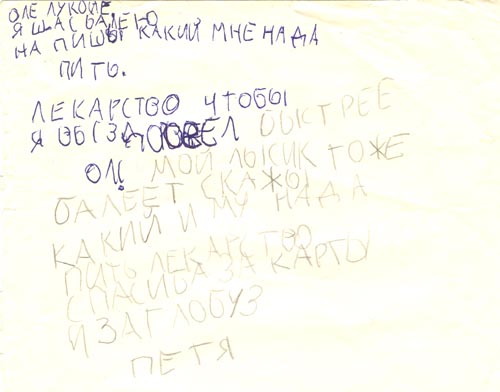 ОЛЕ ЛУКОЙЕ,
Я ЩАС БАЛЕЮ
НА ПИШЫ КАКИЙ МНЕ НАДА
ПИТЬ.
ЛЕКАРСТВО ЧТОБЫ
Я ВЫЗДОРОВЕЛ БЫСТРЕЕ
ОЛ! МОЙ ЛЫСИК ТОЖЕ
БАЛЕЕТ СКАЖЫ
КАКИЙ И МУ НАДА
ПИТЬ ЛЕКАРСТВО
СПАСИБА ЗА КАРТЫ
И ЗА ГЛОБУЗ
ПЕТЯ